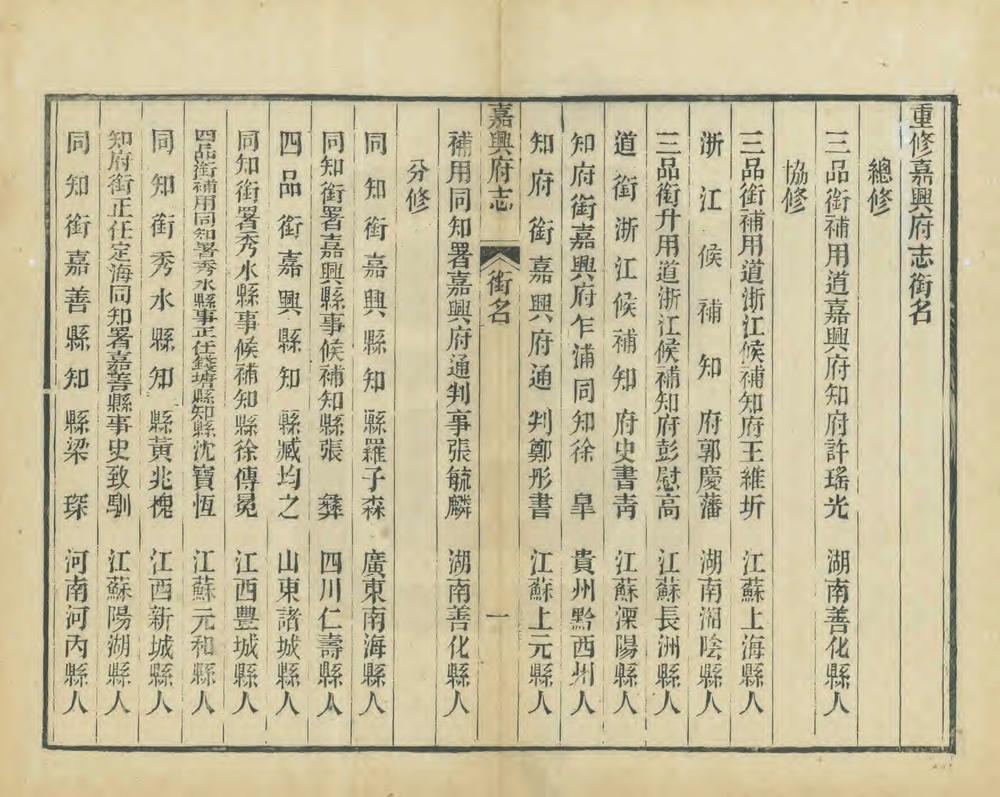 重修嘉興府志銜名
總修
三品銜補用道嘉興府知府許瑤光 湖南善化縣人
協修
三品銜補用道浙江候補知府王維圻 江蘇上海縣人
浙江候補知府郭慶藩 湖南湘陰縣人
三品銜升用道浙江候補知府彭慰高 江蘇長洲縣人
道銜浙江候補知府史書青 江蘇溧陽縣人
知府銜嘉興府乍浦同知徐皐 貴州黔西州人
知府銜嘉興府通判鄭彤書 江蘇上元縣人
嘉興府志 銜名 一
補用同知署嘉興府通判事張毓麟 湖南善化縣人
分修
同知銜嘉興縣知縣羅子森 廣東南海縣人
同知銜署嘉興縣事候補知縣張彝 四川仁壽縣人
四品銜嘉興縣知縣臧均之 山東諸城縣人
同知銜署秀水縣事候補知縣徐傳冕 江西豐城縣人
四品銜補用同知署秀水縣事正任錢塘縣知縣沈寶恆 江蘇元和縣人
同知銜秀水縣知縣黃兆槐 江西新城縣人
知府銜正任定海同知署嘉善縣事史致馴 江蘇陽湖縣人
同知銜嘉善縣知縣梁琛 河南河內縣人